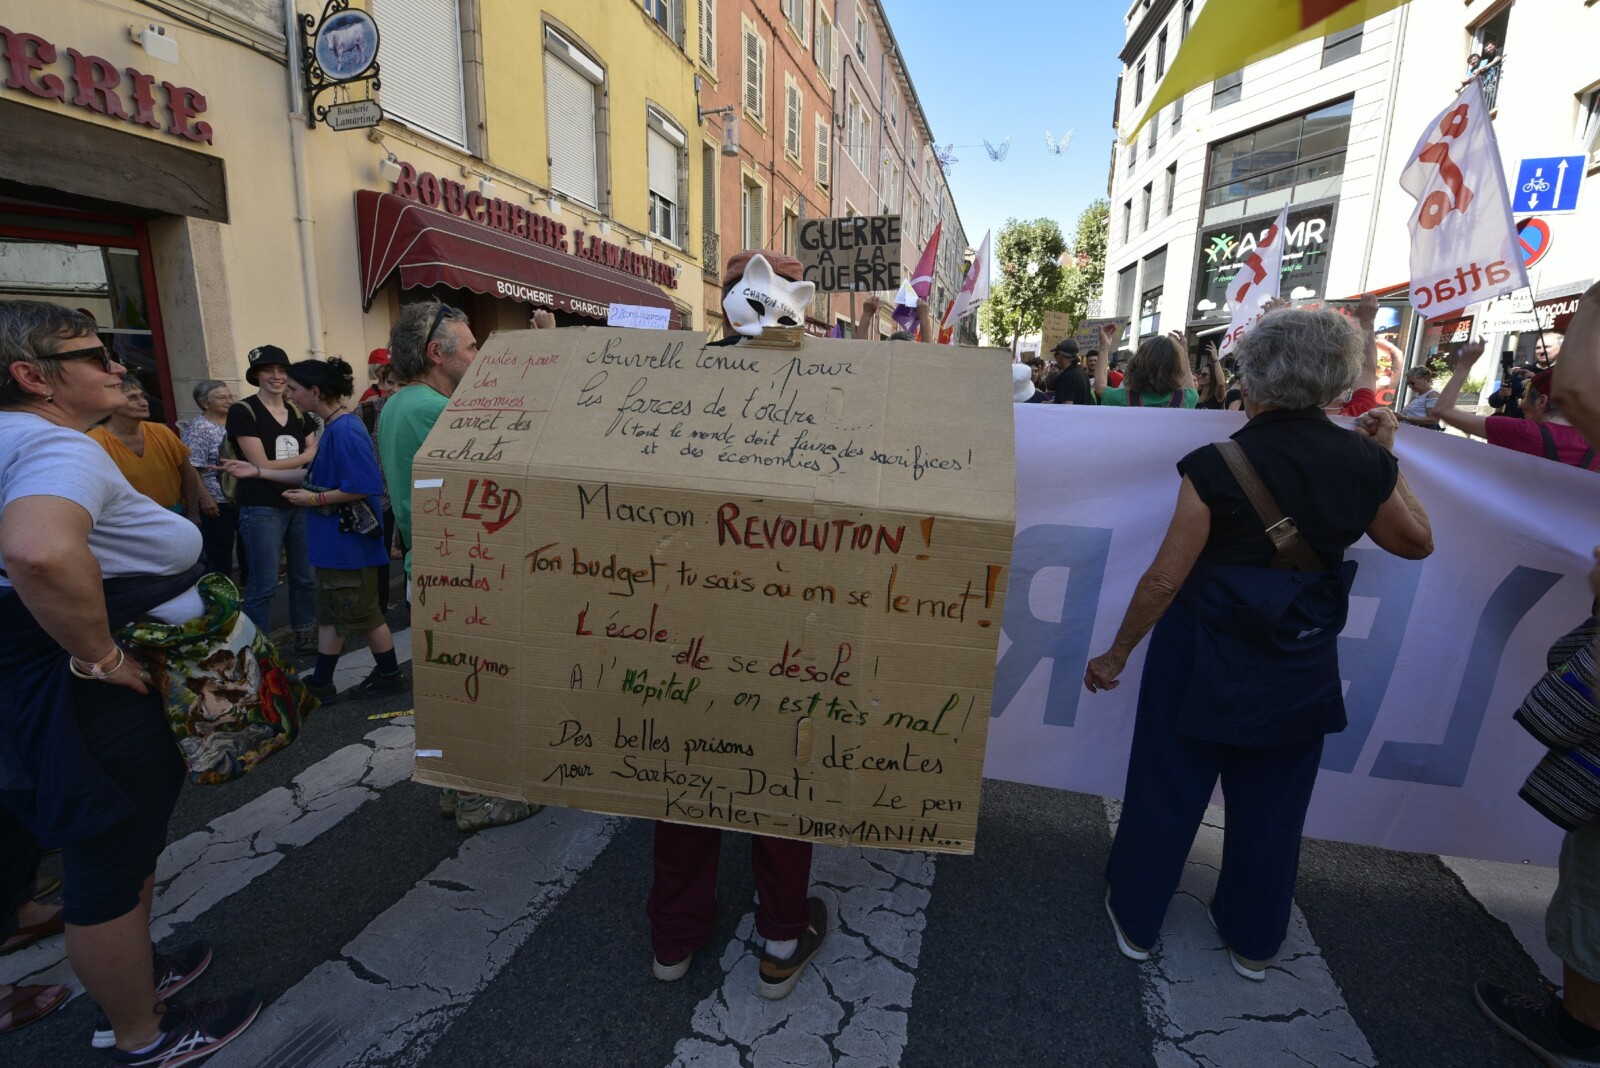 ERIE
Boucherie
Lamartine
BOUCHERIE LAMARTINE
BOUCHERIE - CHARCUT
GUERRE
A LA
GUERRE
CHATON
attac
justes pour
des
économies:
arrêt des
achats
de LBD
et de
grenades!
et de
Lacrymo
.......
Nouvelle tenue pour
les farces de l'ordre .....
(tout le monde doit faire des sacrifices!
et des économies)
Macron RÉVOLUTION!
Ton budget, tu sais où on se le met!
L'école: elle se désole!
A l'Hôpital, on est très mal!
Des belles prisons décentes
pour Sarkozy - Dati - Le pen
Kohler - DARMANIN...